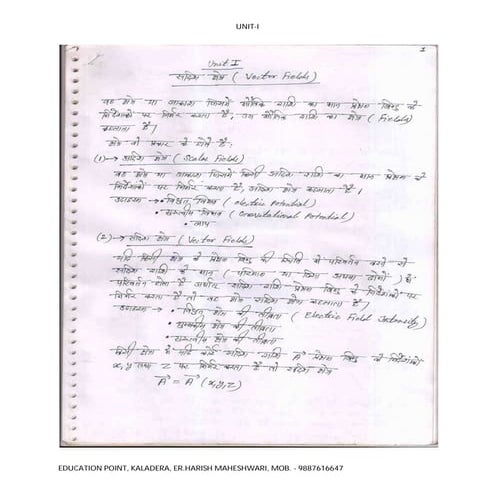 UNIT-I
1
Unit I
सदिश क्षेत्र ( Vector Fields )
वह क्षेत्र या आकाश जिसमें भौतिक राशि का मान प्रेक्षण बिन्दु के
निर्देशांकों पर निर्भर करता है, उस भौतिक राशि का क्षेत्र ( Fields )
कहलाता है।
क्षेत्र दो प्रकार के होते हैं:
(1) → अदिश क्षेत्र ( Scalar Fields )
वह क्षेत्र या आकाश जिसमें किसी अदिश राशि का मान प्रेक्षण के
निर्देशांकों पर निर्भर करता है, अदिश क्षेत्र कहलाता है।
उदाहरण → • विद्युत विभव ( electric Potential )
• गुरुत्वीय विभव ( Gravitational Potential )
• ताप
(2) → सदिश क्षेत्र ( Vector Fields )
यदि किसी क्षेत्र के प्रेक्षण बिन्दु की स्थिति में परिवर्तन करने से
सदिश राशि के मान ( परिमाण या दिशा अथवा दोनों ) में
परिवर्तन होता है अर्थात सदिश राशि प्रेक्षण बिन्दु के निर्देशांकों पर
निर्भर करता है तो वह क्षेत्र सदिश क्षेत्र कहलाता है।
उदाहरण → • विद्युत क्षेत्र की तीव्रता ( Electric Field Intensity )
• चुम्बकीय क्षेत्र की तीव्रता
• गुरुत्वीय क्षेत्र की तीव्रता
किसी क्षेत्र में यदि कोई सदिश राशि A→ प्रेक्षण बिन्दु के निर्देशांकों
x, y तथा z पर निर्भर करता है तो सदिश क्षेत्र
A→ = A→ (x,y,z)
EDUCATION POINT, KALADERA, ER.HARISH MAHESHWARI, MOB. - 9887616647